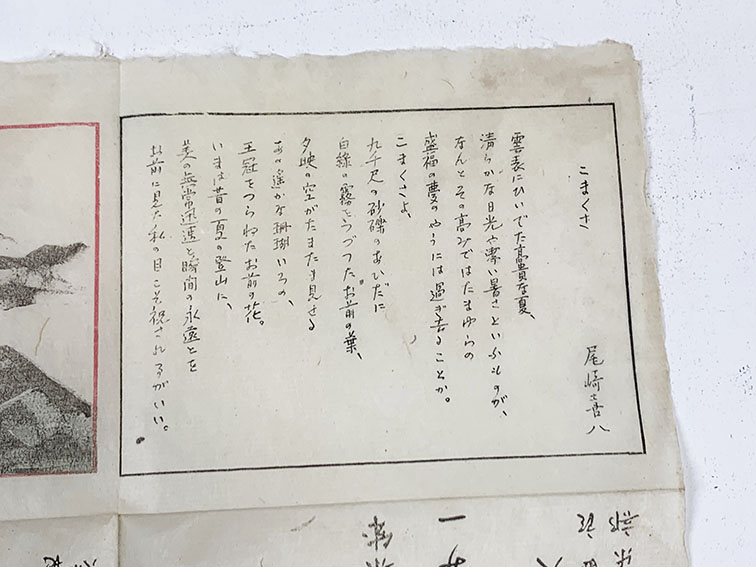 こまくさ
尾崎喜八
雲表にひいでた高貴な夏、
清らかな日光や潔い暑さといふものが、
なんとその高みではたまゆらの
盛福の夢のやうには過ぎ去ることか。
こまくさよ、
九千尺の砂礫のあひだに
白緑の霧をつづつたお前の葉、
夕映の空がたまたま見せる
あの遙かな珊瑚いろの、
王冠をつらねたお前の花。
いまは昔の夏の登山に、
美の無常迅速と瞬間の永遠とを
お前に見た私の目こそ祝されるがいい。